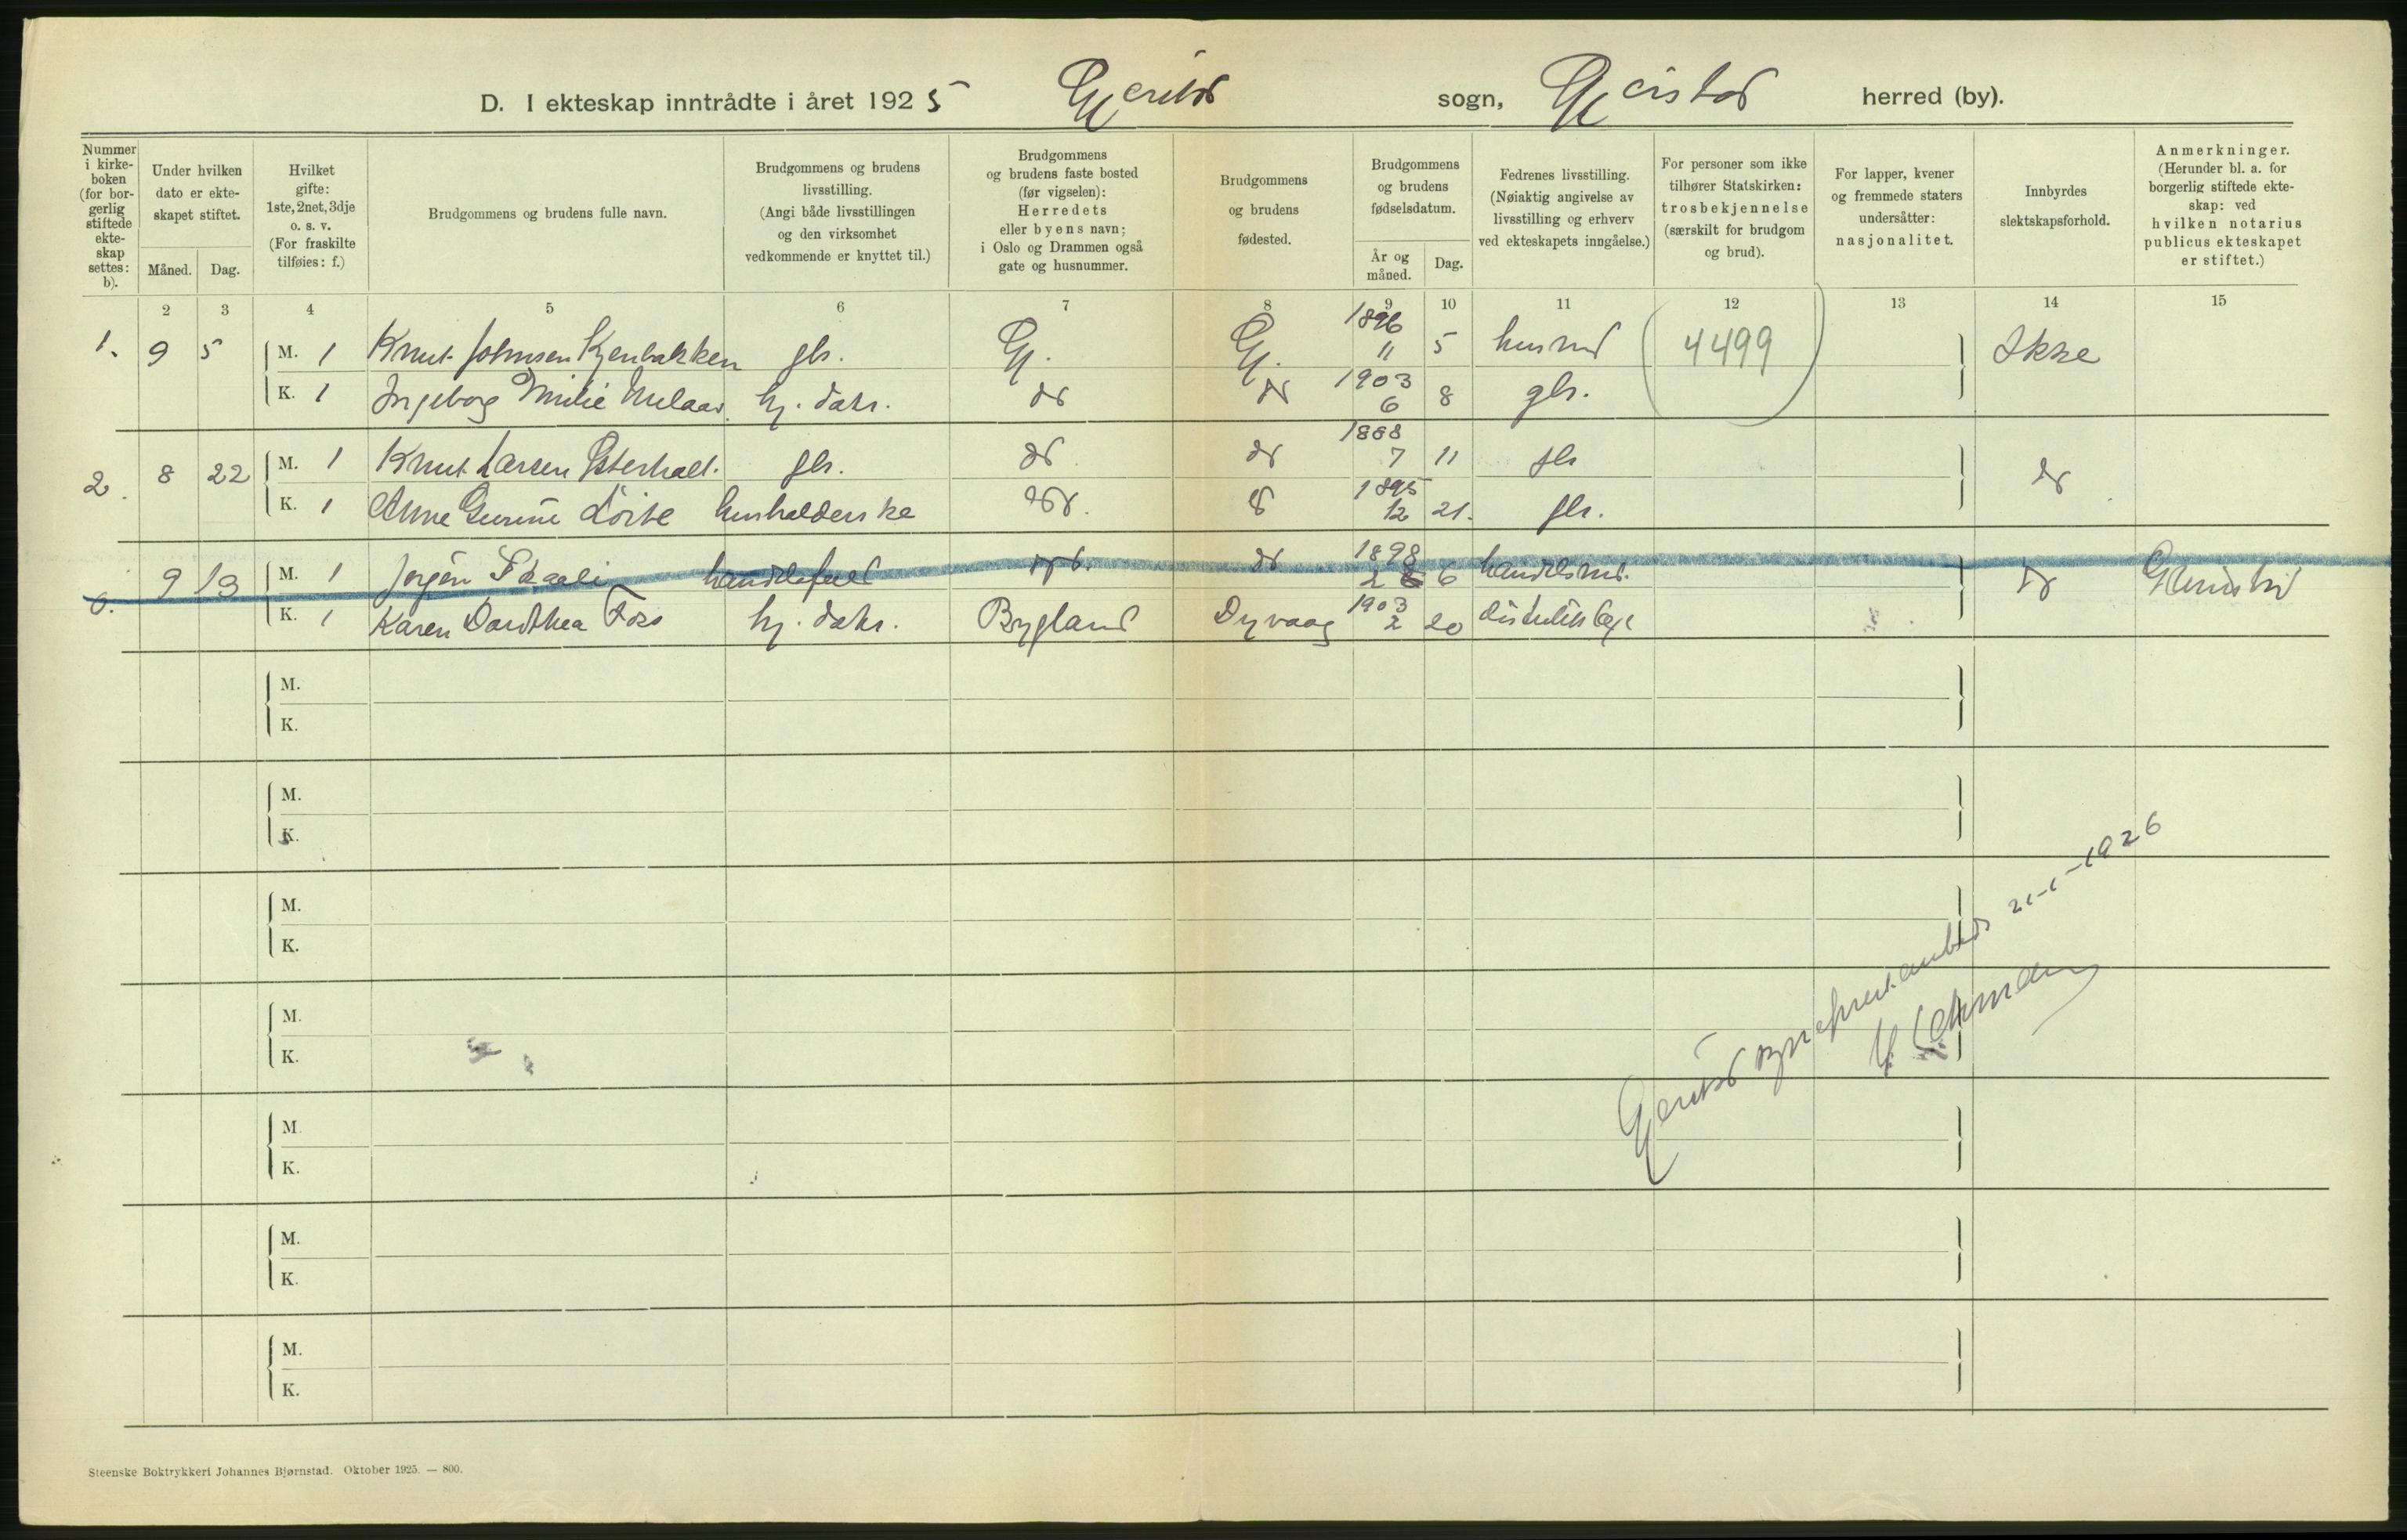 D. I ekteskap inntrådte i året 1925 Gjerstad sogn, Gjerstad herred (by).
Nummer i kirke-boken (for bor-gerlig stiftede ekte-skap settes: b).
Under hvilken dato er ekte-skapet stiftet.
Måned. Dag.
Hvilket gifte: 1ste, 2net, 3dje o. s. v. (For fraskilte tilføies: f.)
Brudgommens og brudens fulle navn.
Brudgommens og brudens livsstilling. (Angi både livsstillingen og den virksomhet vedkommende er knyttet til.)
Brudgommens og brudens faste bosted (før vigselen): Herredets eller byens navn; i Oslo og Drammen også gate og husnummer.
Brudgommens og brudens fødested.
Brudgommens og brudens fødselsdatum.
År og måned. Dag.
Fedrenes livsstilling. (Nøiaktig angivelse av livsstilling og erhverv ved ekteskapets inngåelse.)
For personer som ikke tilhører Statskirken: trosbekjennelse (særskilt for brudgom og brud).
For lapper, kvener og fremmede staters undersåtter: nasjonalitet.
Innbyrdes slektskapsforhold.
Anmerkninger. (Herunder bl. a. for borgerlig stiftede ekte-skap: ved hvilken notarius publicus ekteskapet er stiftet.)
2 3 4 5 6 7 8 9 10 11 12 13 14 15
1. 9 5 M. 1 Knut Johnsen Kjenbakken gbr. Gj. Gj. 1896 11 5 husmd (4499) Ikke
K. 1 Ingeborg Milie hj. datr. do do 1903 6 8 gbr.
2. 8 22 M. 1 Knut Larsen Østerholt. gbr. do do 1888 7 11 gbr do
K. 1 Anne Gurine husholderske do. do 1895 12 21. gbr.
9 13 M. 1 Jørgen Skaali do 1898 2 6 handelsmd. do
K. 1 Karen Dorothea Foss hj. datr. Bygland Dyvaag 1903 2 20
M.
K.
M.
K.
M.
K.
M.
K.
M.
K.
M.
K.
M.
K.
Gjerstad sogneprestembede 21-1-1926
Steenske Boktrykkeri Johannes Bjørnstad. Oktober 1925. — 800.